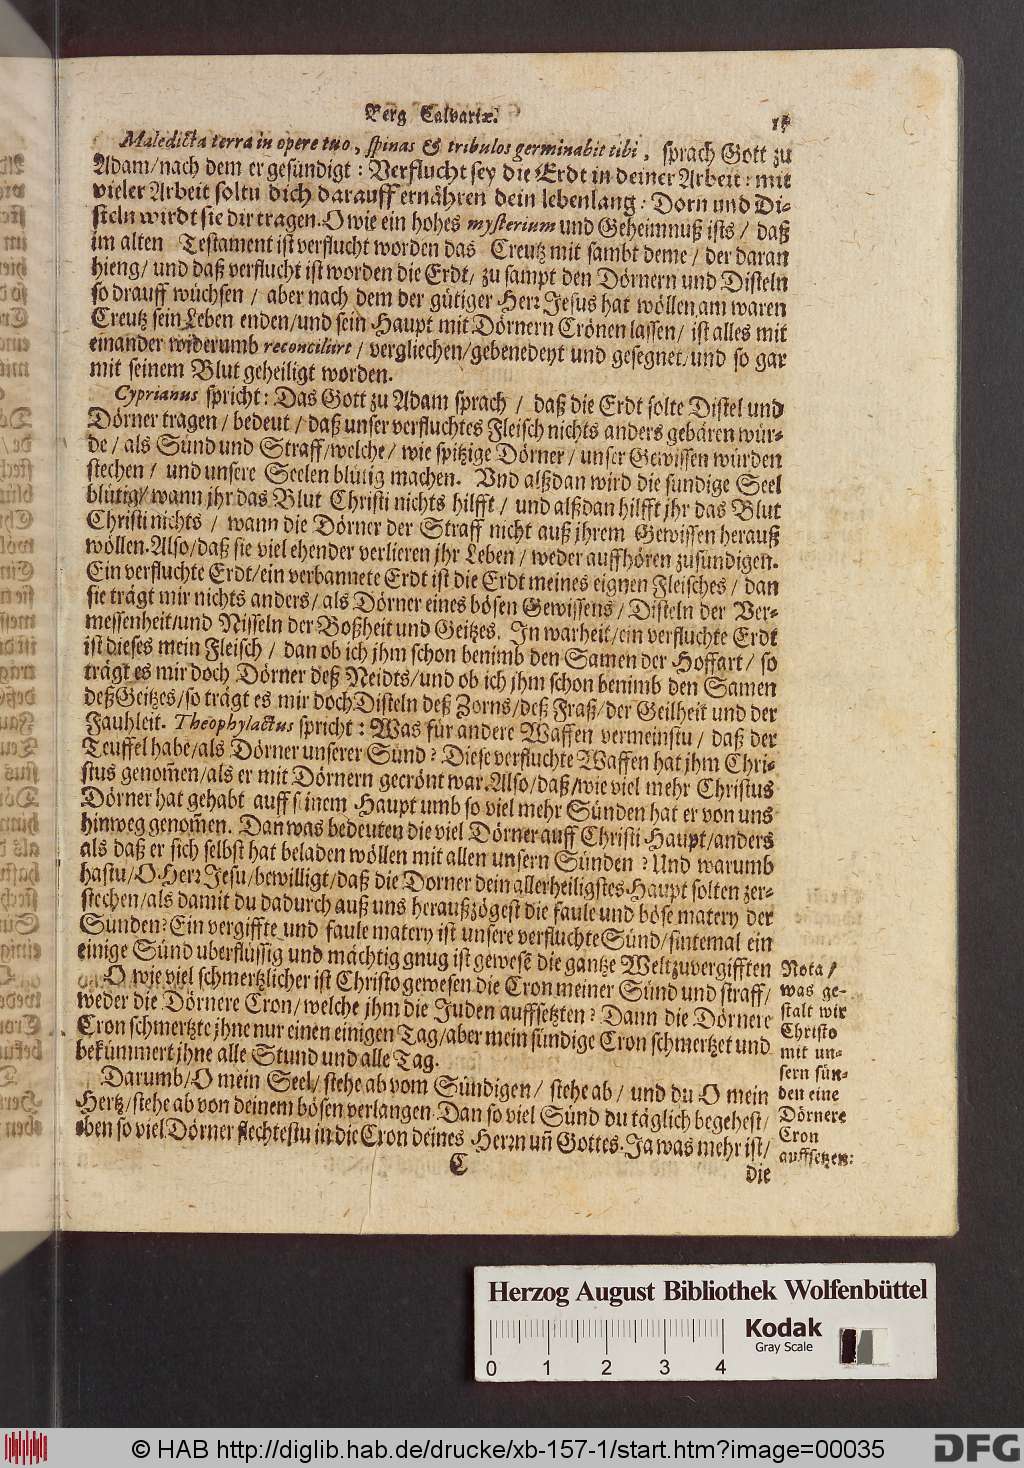 Berg Calvariæ.
Maledicta terra in opere tuo, spinas & tribulos germinabit tibi, sprach Gott zu
Adam/nach dem er gesündigt: Verflucht sey die Erdt in deiner Arbeit: mit
vieler Arbeit soltu dich darauff ernähren dein lebenlang: Dorn und Di-
steln wirdt sie dir tragen. O wie ein hohes mysterium und Geheimnuß ists/ daß
im alten Testament ist verflucht worden das Creutz mit sambt deme/ der daran
hieng/ und daß verflucht ist worden die Erdt/ zu sampt den Dörnern und Disteln
so drauff wüchsen/ aber nach dem der gütiger Herr Jesus hat wöllen am waren
Creutz sein Leben enden/und sein Haupt mit Dörnern Crönen lassen/ ist alles mit
einander widerumb reconcilirt/ vergliechen/gebenedeyt und gesegnet/und so gar
mit seinem Blut geheiligt worden.
Cyprianus spricht: Das Gott zu Adam sprach/ daß die Erdt solte Distel und
Dörner tragen/ bedeut/ daß unser verfluchtes Fleisch nichts anders gebären wür-
de/ als Sünd und Straff/welche/ wie spitzige Dörner/ unser Gewissen würden
stechen/ und unsere Seelen blütig machen. Und alßdan wird die sündige Seel
blütig/ wann jhr das Blut Christi nichts hilfft/ und alßdan hilfft jhr das Blut
Christi nichts/ wann die Dörner der Straff nicht auß jhrem Gewissen herauß
wöllen. Also/daß sie viel ehender verlieren jhr Leben/ weder auffhören zusündigen.
Ein verfluchte Erdt/ein verbannete Erdt ist die Erdt meines eignen Fleisches/ dan
sie trägt mir nichts anders/ als Dörner eines bösen Gewissens/ Disteln der Ver-
messenheit/und Nisseln der Boßheit und Geitzes. In warheit/ein verfluchte Erdt
ist dieses mein Fleisch/ dan ob ich jhm schon benimb den Samen der Hoffart/ so
trägt es mir doch Dörner deß Neidts/und ob ich jhm schon benimb den Samen
deß Geitzes/so trägt es mir doch Disteln deß Zorns/deß Fraß/der Geilheit und der
Fauhleit. Theophylactus spricht: Was für andere Waffen vermeinstu/ daß der
Teuffel habe/als Dörner unserer Sünd? Diese verfluchte Waffen hat jhm Chri-
stus genom̄en/als er mit Dörnern gecrönt war. Also/daß/wie viel mehr Christus
Dörner hat gehabt auff seinem Haupt umb so viel mehr Sünden hat er von uns
hinweg genom̄en. Dan was bedeuten die viel Dörner auff Christi Haupt/anders
als daß er sich selbst hat beladen wöllen mit allen unsern Sünden? Und warumb
hastu/O Herr Jesu/bewilligt/daß die Dorner dein allerheiligstes Haupt solten zer-
stechen/als damit du dadurch auß uns herauß zögest die faule und böse matery der
Sünden? Ein vergiffte und faule matery ist unsere verfluchte Sünd/sintemal ein
einige Sünd uberflüssig und mächtig gnug ist gewesē die gantze Welt zuvergifften
O wie viel schmertzlicher ist Christo gewesen die Cron meiner Sünd und straff/
weder die Dörnere Cron/welche jhm die Juden auffsetzten? Dann die Dörnere
Cron schmertzte jhne nur einen einigen Tag/aber mein sündige Cron schmertzet und
bekümmert jhne alle Stund und alle Tag.
Darumb/O mein Seel/stehe ab vom Sündigen/ stehe ab/ und du O mein
Hertz/stehe ab von deinem bösen verlangen. Dan so viel Sünd du täglich begehest/
eben so viel Dörner flechtestu in die Cron deines Herrn uñ Gottes. Ja was mehr ist/
C
die
Nota/
was ge-
stalt wir
Christo
mit un-
sern sün-
den eine
Dörnere
Cron
auffsetzen:
Herzog August Bibliothek Wolfenbüttel
Kodak
Gray Scale
0 1 2 3 4
© HAB http://diglib.hab.de/drucke/xb-157-1/start.htm?image=00035
DFG